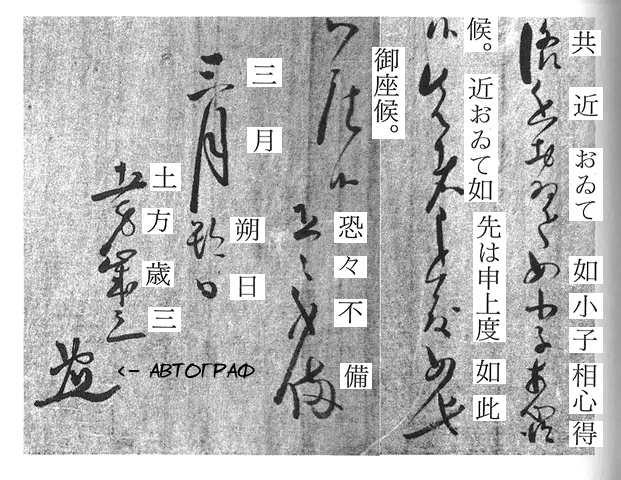 共近おゐて如小子相心得
候。近おゐて如先は申上度如此
御座候。恐々不備
三月朔日
土方歳三
<- АВТОГРАФ